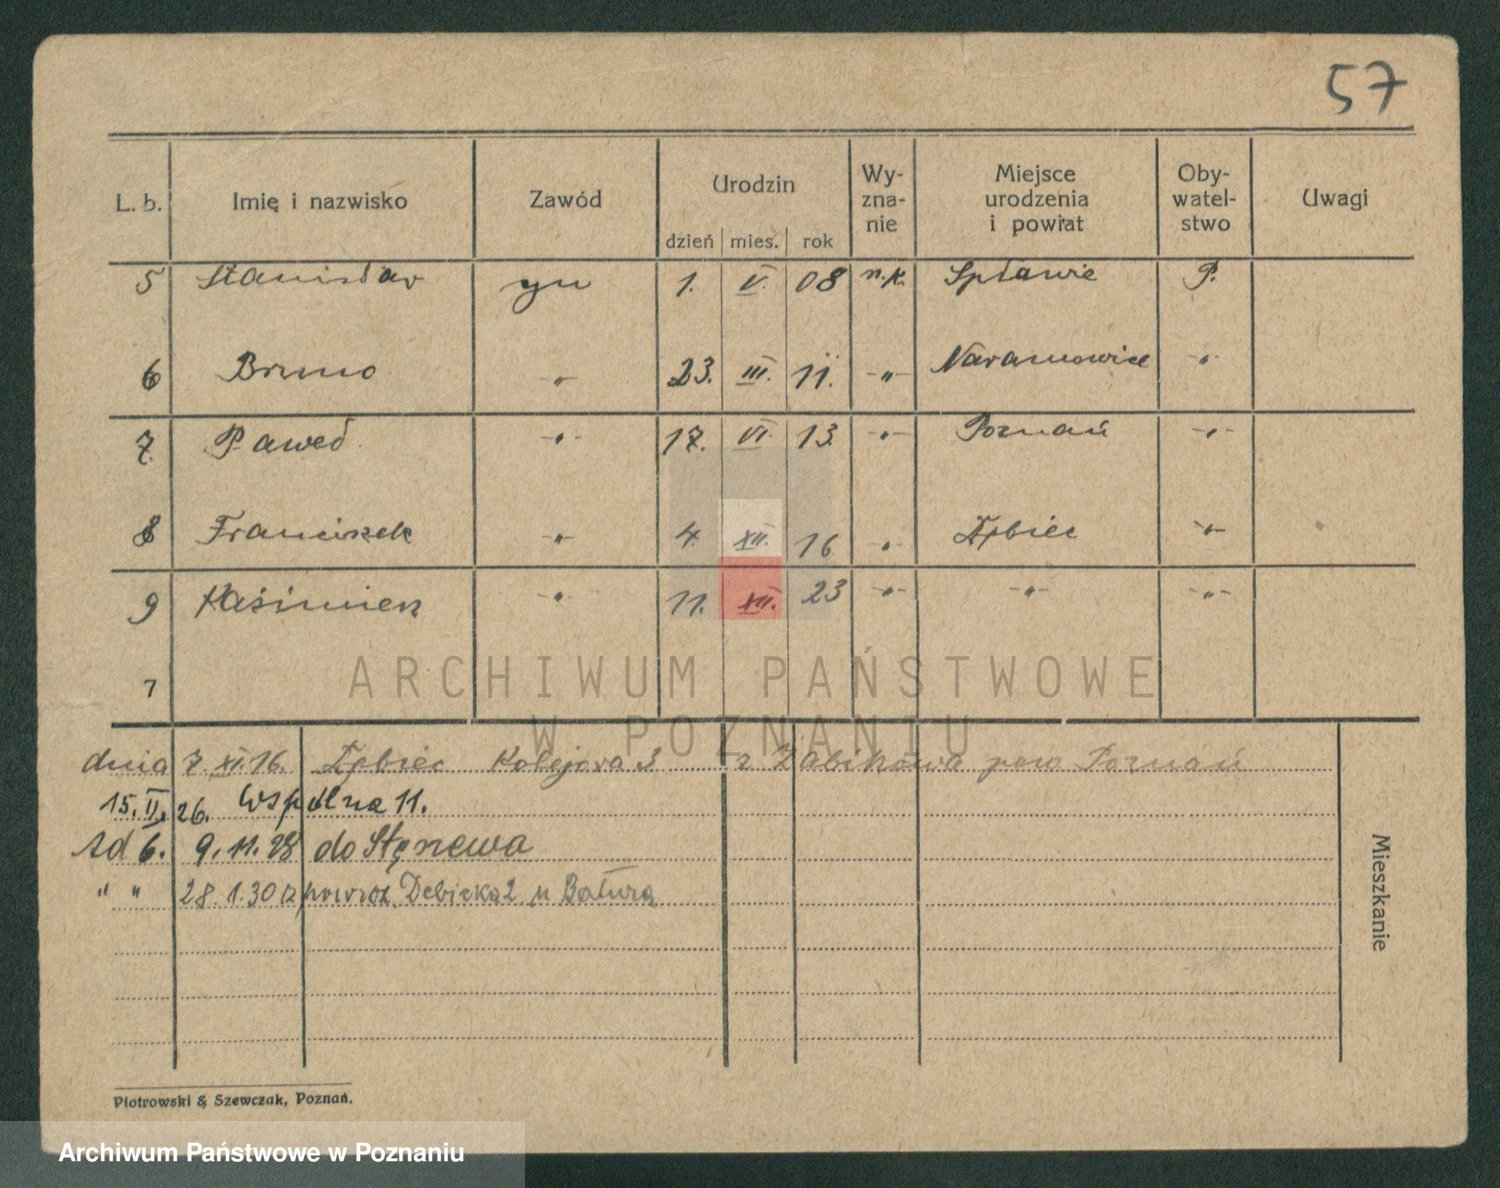 57
L. b. Imię i nazwisko Zawód Urodzin dzień mies. rok Wy-zna-nie Miejsce urodzenia i powiat Oby-watel-stwo Uwagi
5 Stanisław yn 1. V. 08 n.k. Spławie P.
6 Bruno " 23. III. 11. " Naramowice "
7. Paweł " 17. VI. 13. " Poznań "
8 Franciszek " 4. XII. 16 " Dębiec "
9 Kaźimierz " 11. XII. 23 " " "
7
ARCHIWUM PAŃSTWOWE
W POZNANIU
dnia 7. XI. 16. Dębiec Kolejowa 3 z Żabikowa pow Poznań
15. II. 26. Wspólna 11.
Ad 6. 9. 11. 28 do Stęszewa
" " 28. 1. 30 powrót. Dębicka 2. u Batura
Mieszkanie
Piotrowski & Szewczak, Poznań.
Archiwum Państwowe w Poznaniu